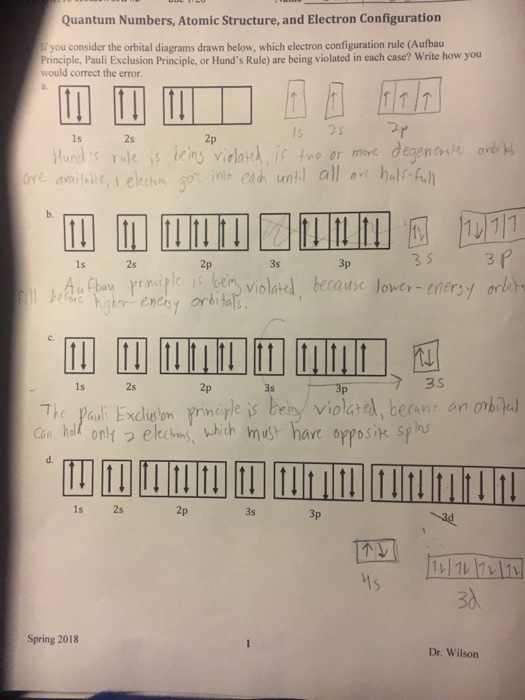 Quantum Numbers, Atomic Structure, and Electron Configuration
If you consider the orbital diagrams drawn below, which electron configuration rule (Aufbau
Principle, Pauli Exclusion Principle, or Hund's Rule) are being violated in each case? Write how you
would correct the error.
a.
1s 2s 2p 1s 2s 2p
Hund's rule is being violated, if two or more degenerate orbitals
are available, 1 electron goes into each until all are half-full
b.
1s 2s 2p 3s 3p 3s 3p
Aufbau principle is being violated, because lower-energy
fill before higher-energy orbitals.
c.
1s 2s 2p 3s 3p 3s
The Pauli Exclusion principle is being violated, because an orbital
can hold only 2 electrons, which must have opposite spins
d.
1s 2s 2p 3s 3p 3d
4s 3d
Spring 2018 1 Dr. Wilson